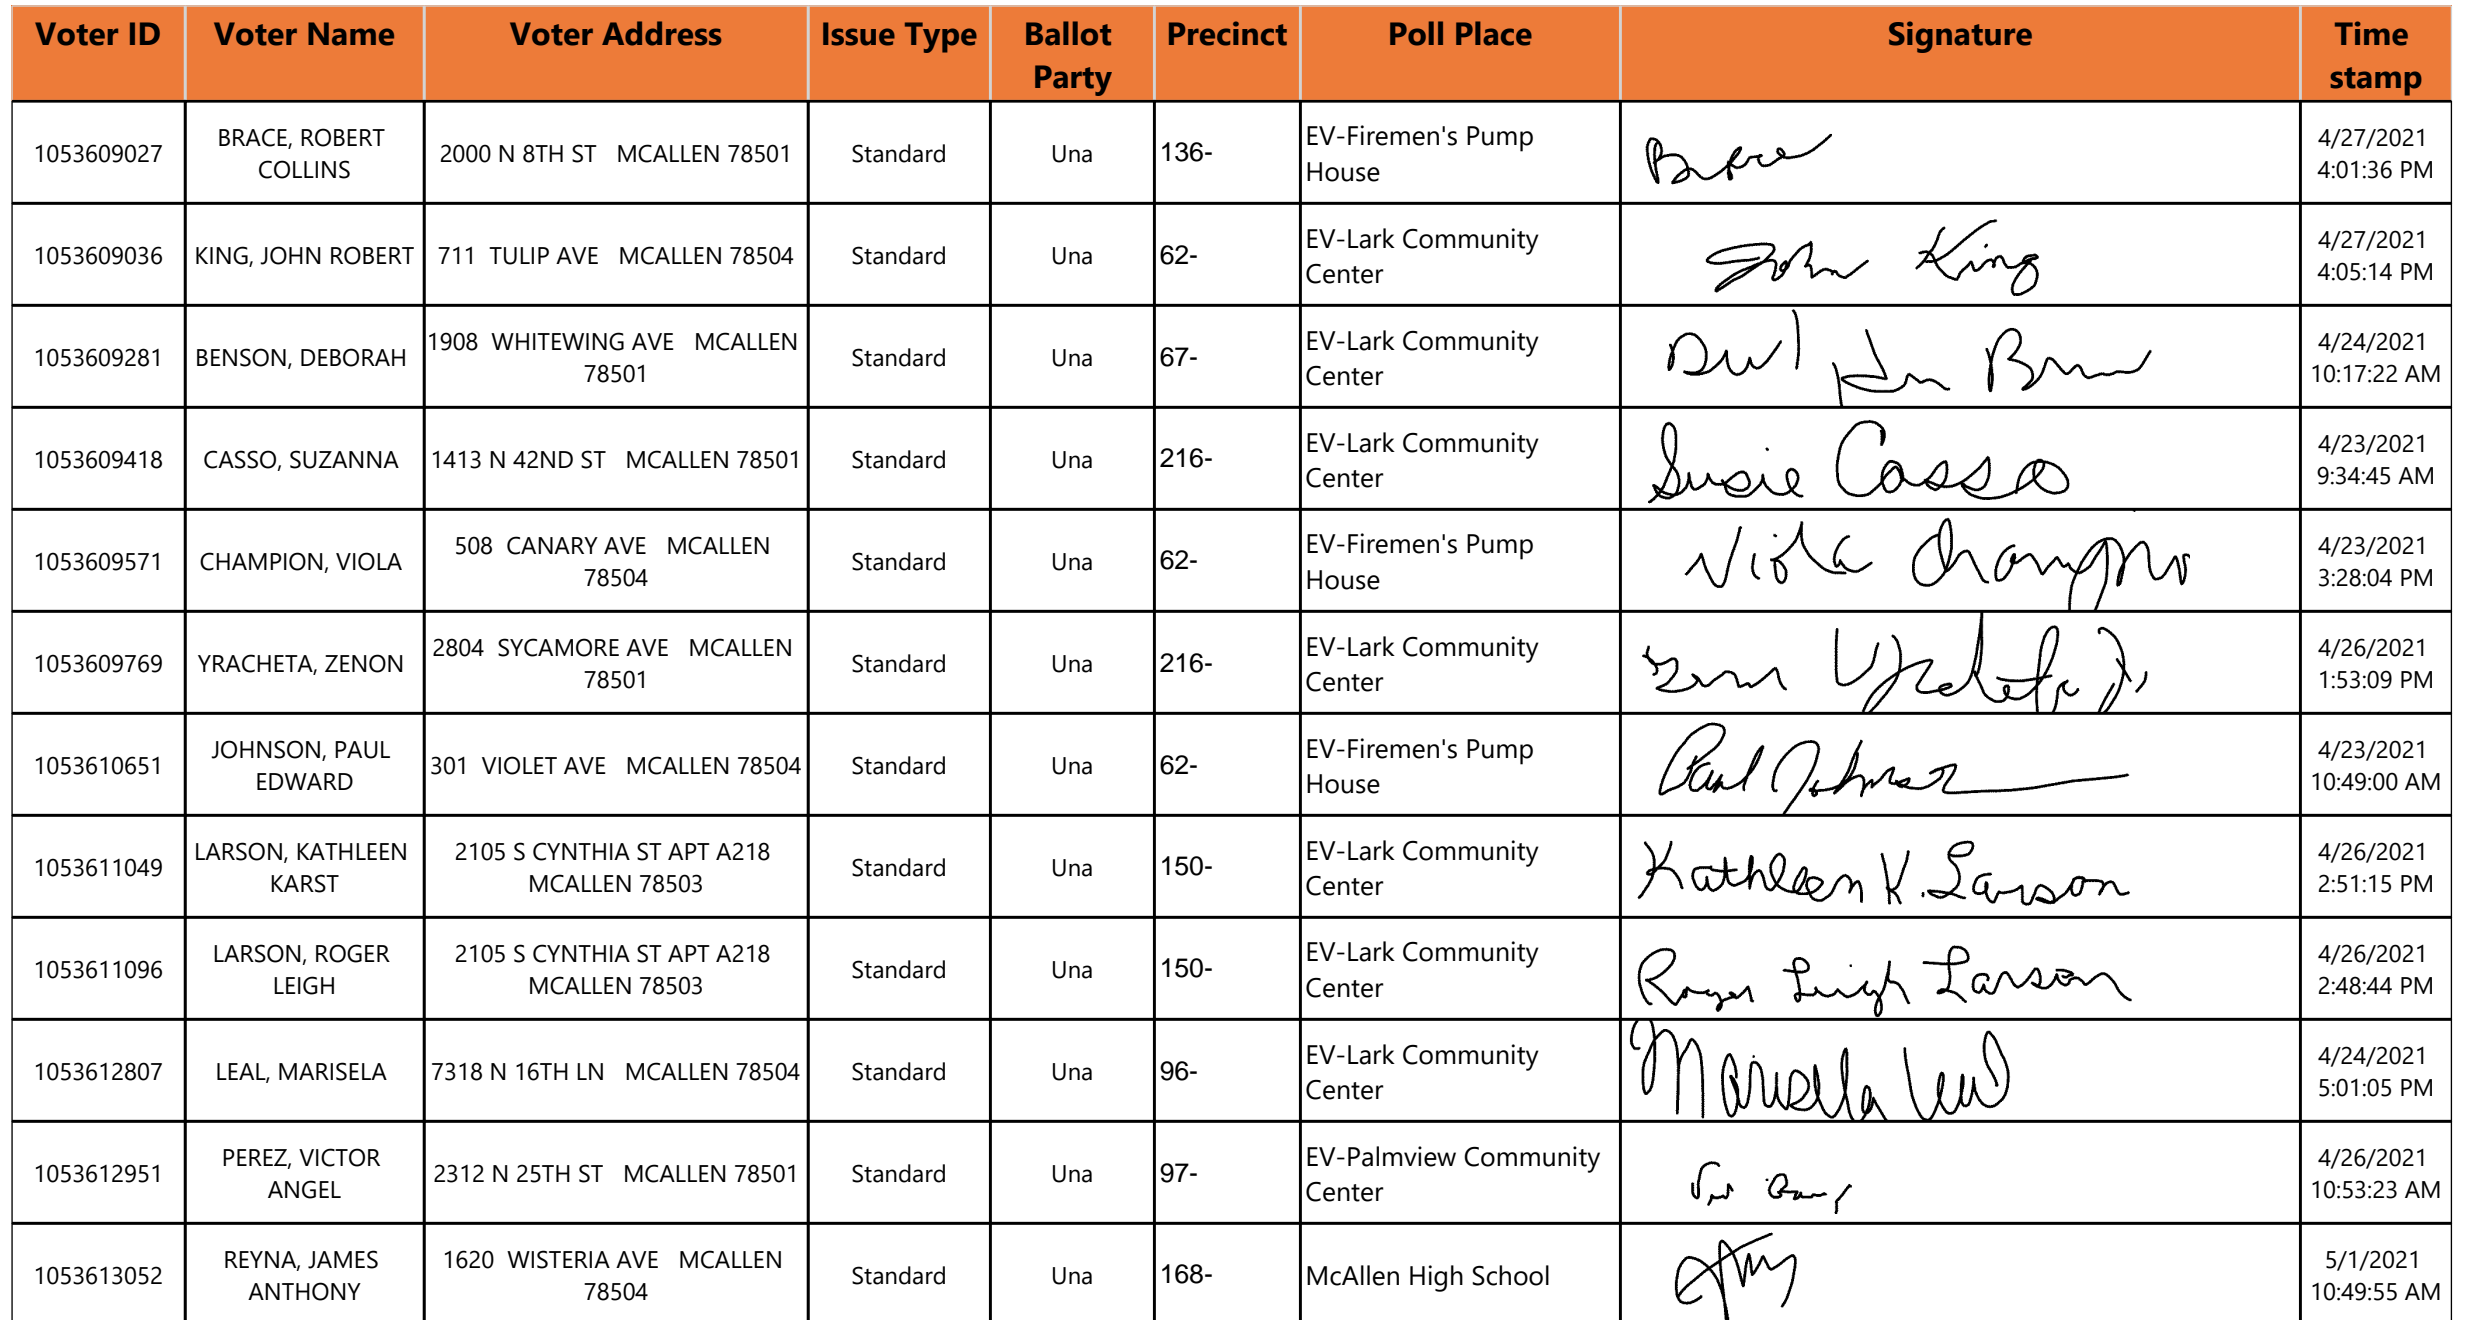 Voter ID Voter Name Voter Address Issue Type Ballot Party Precinct Poll Place Signature Time stamp
1053609027 BRACE, ROBERT COLLINS 2000 N 8TH ST MCALLEN 78501 Standard Una 136- EV-Firemen's Pump House Brace 4/27/2021 4:01:36 PM
1053609036 KING, JOHN ROBERT 711 TULIP AVE MCALLEN 78504 Standard Una 62- EV-Lark Community Center John King 4/27/2021 4:05:14 PM
1053609281 BENSON, DEBORAH 1908 WHITEWING AVE MCALLEN 78501 Standard Una 67- EV-Lark Community Center 4/24/2021 10:17:22 AM
1053609418 CASSO, SUZANNA 1413 N 42ND ST MCALLEN 78501 Standard Una 216- EV-Lark Community Center Susie Casso 4/23/2021 9:34:45 AM
1053609571 CHAMPION, VIOLA 508 CANARY AVE MCALLEN 78504 Standard Una 62- EV-Firemen's Pump House Viola Champion 4/23/2021 3:28:04 PM
1053609769 YRACHETA, ZENON 2804 SYCAMORE AVE MCALLEN 78501 Standard Una 216- EV-Lark Community Center Zenon Yracheta Jr. 4/26/2021 1:53:09 PM
1053610651 JOHNSON, PAUL EDWARD 301 VIOLET AVE MCALLEN 78504 Standard Una 62- EV-Firemen's Pump House Paul Johnson 4/23/2021 10:49:00 AM
1053611049 LARSON, KATHLEEN KARST 2105 S CYNTHIA ST APT A218 MCALLEN 78503 Standard Una 150- EV-Lark Community Center Kathleen K. Larson 4/26/2021 2:51:15 PM
1053611096 LARSON, ROGER LEIGH 2105 S CYNTHIA ST APT A218 MCALLEN 78503 Standard Una 150- EV-Lark Community Center Roger Leigh Larson 4/26/2021 2:48:44 PM
1053612807 LEAL, MARISELA 7318 N 16TH LN MCALLEN 78504 Standard Una 96- EV-Lark Community Center Marisela Leal 4/24/2021 5:01:05 PM
1053612951 PEREZ, VICTOR ANGEL 2312 N 25TH ST MCALLEN 78501 Standard Una 97- EV-Palmview Community Center 4/26/2021 10:53:23 AM
1053613052 REYNA, JAMES ANTHONY 1620 WISTERIA AVE MCALLEN 78504 Standard Una 168- McAllen High School 5/1/2021 10:49:55 AM